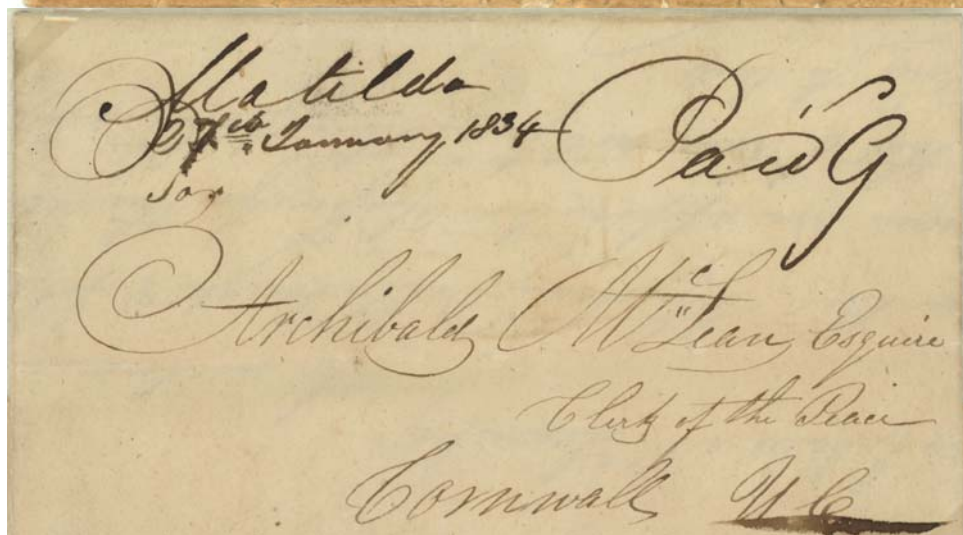 Matilda
27th January 1834
Paid 6
Archibald McLean Esquire
Clerk of the Peace
Cornwall U C